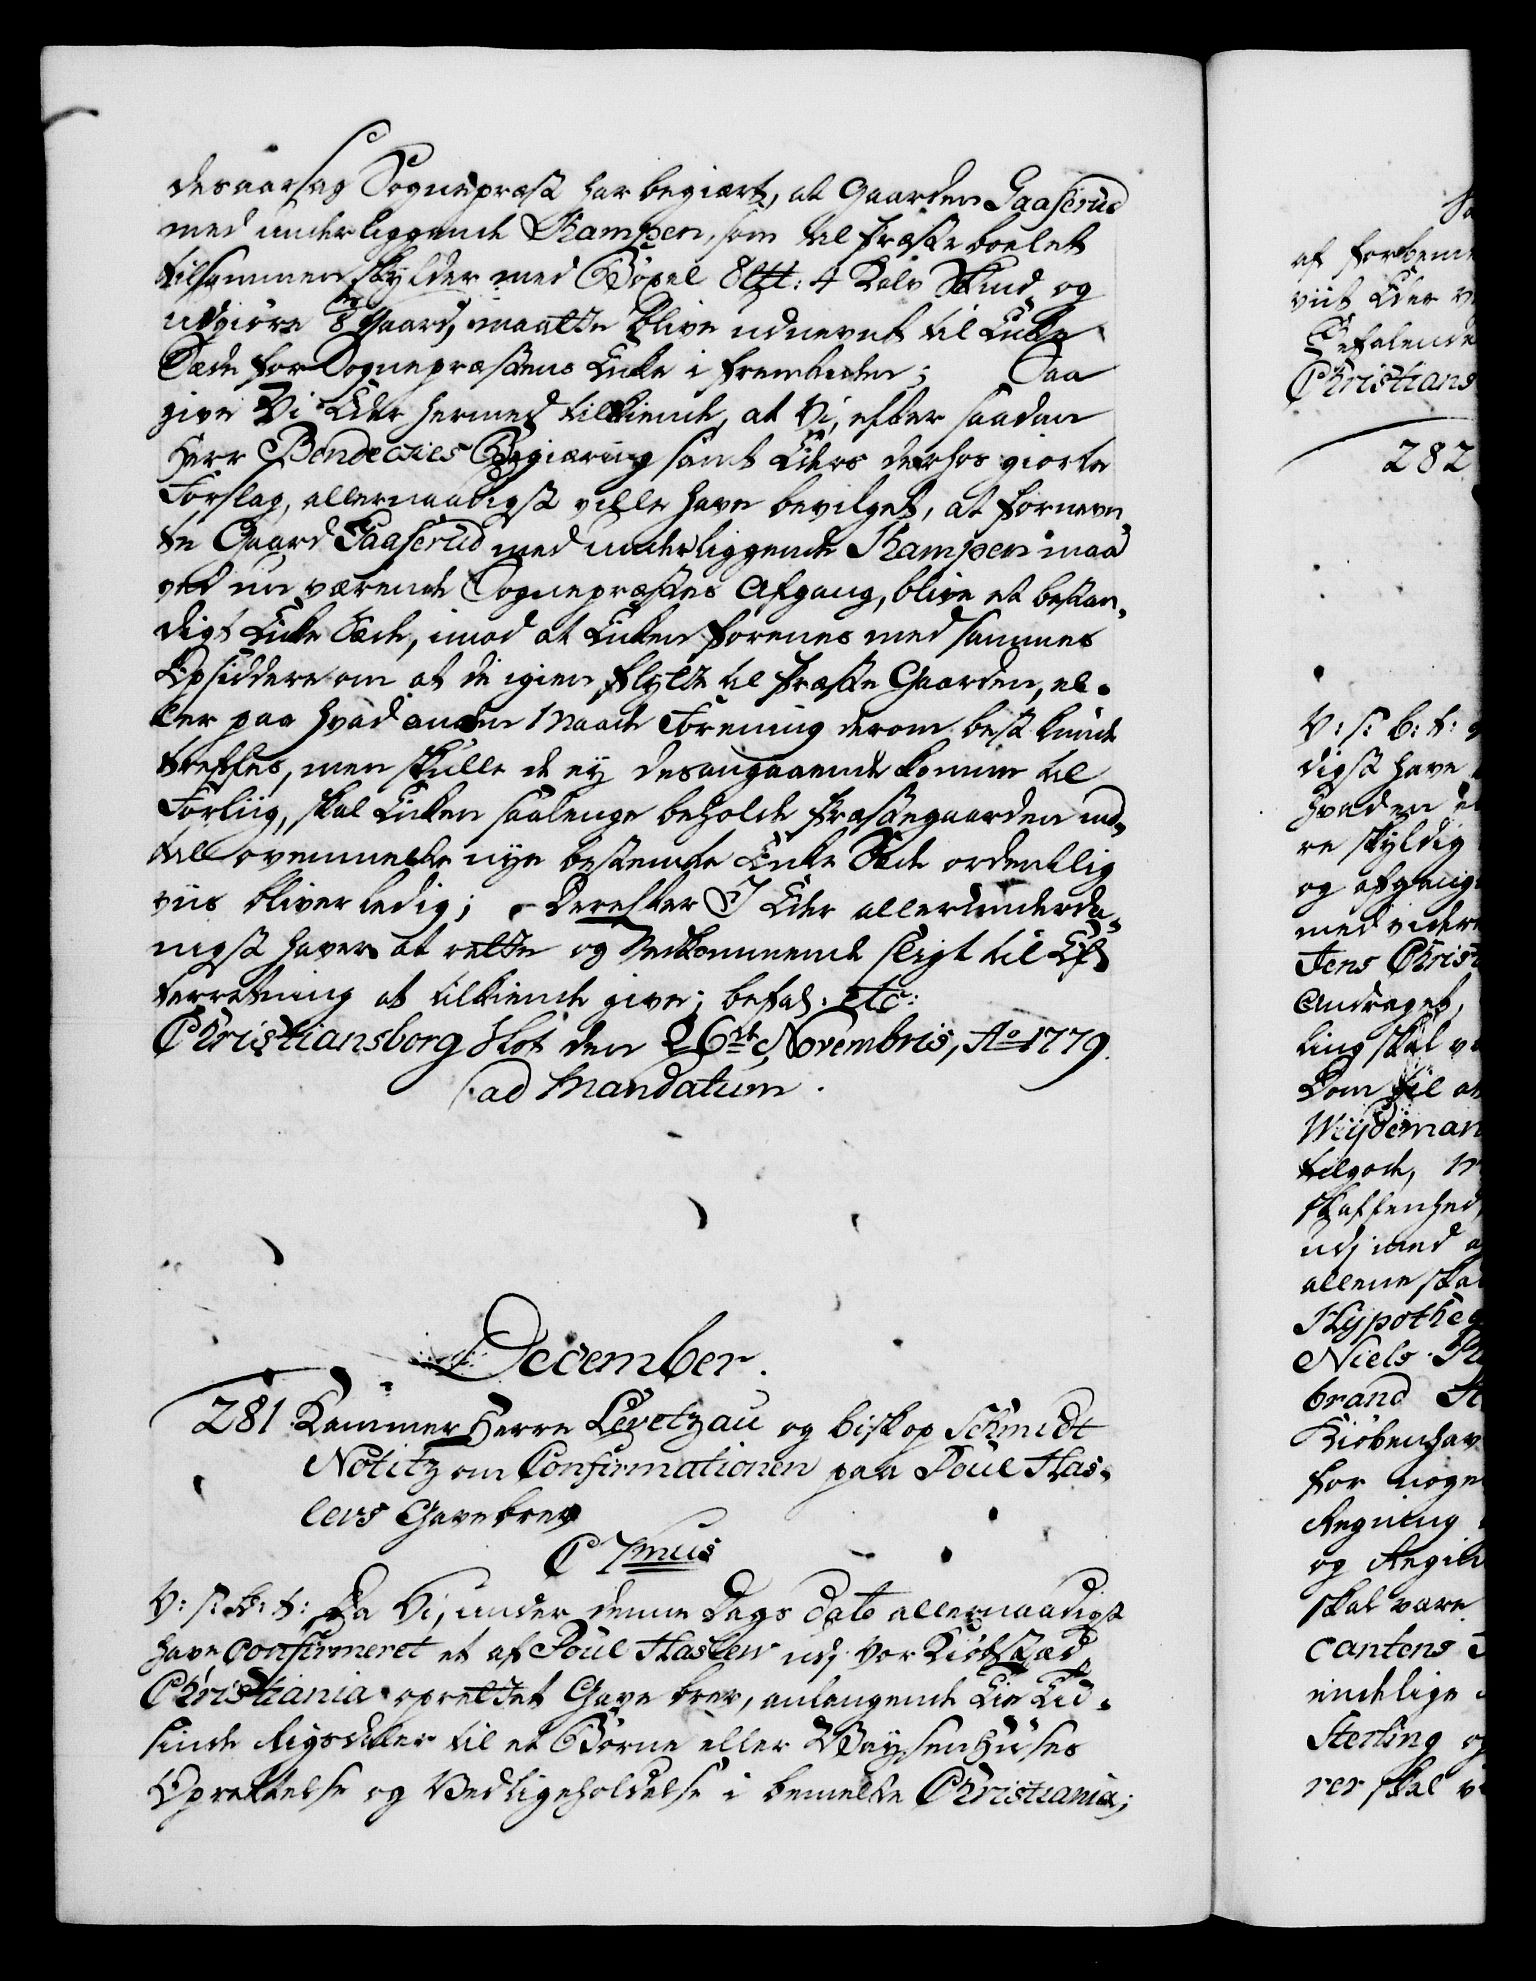 desaarsag Sognepræst har begiært, at Gaarden Gaaserud
med underliggende Kampen, som til Præsteboelet
tilsammen skylder med Böxel 8 Ltt: 4 Kalv Skind og
udgiöre Gaard, maatte blive udnevnt til Enke
Sæde for Sognepræstens Enke i fremtiden; Saa
give Vi Eder hermed tilkiende, at Vi, efter saadan
Herr Bendeckes Begiæring samt Eders derhos giorte
Forslag, allernaadigst ville have bevilget, at fornevn-
te Gaard Gaaserud med underliggende Kampen maa
ved nu værende Sognepræstes Afgang, blive et bestan-
digt Enke Sæde, imod at Enken forenes med sammes
Opsiddere om at de igien flytte til Præste Gaarden, el-
ler paa hvad anden Maade Forening derom best kunde
treffes, men skulle de ej desangaaende komme til
Forliig, skal Enken saalenge beholde Præstegaarden ind-
til ovenmelte nye bestemte Enke Sæde ordentlig
viis bliver ledig; Derefter I Eder allerunderda-
nigst haver at rette og Vedkommende sligt til Ef-
terretning at tilkiende give; befal. etc:
Christiansborg Slot den 26de Novembris, Ao 1779.
ad Mandatum.
December.
281 Kammer Herre Levetzau og biskop Schmidt
Notitz om Confirmationen paa Poul Has-
levs Gavebrev
C 7mus
V: s: G: t: Da Vi, under denne Dags dato allernaadigst
have Confirmeret et af Poul Haslew udj Vor Kiöbstæd
Christiania oprettet Gave brev, anlangende Tie Tu-
sinde Rigsdaler til et Börne eller Waysenhuses
Oprettelse og Vedligeholdelse i bemelte Christiania;
af forbeme
viit Eder
Befalende
Christians
282
V: s: G: t:
digst have
hvaden
re skyldig
og afgangn
med videre
Jens Christ
Andraget,
ling skal
Dom til at
Weydeman
tilgode,
skaffenhed,
udj med
allene skal
Hypothe
Niels
brand
Kiöbenhav
for noge
Regning
og
skal være
cantens
endelige
Sterling og
rer skal